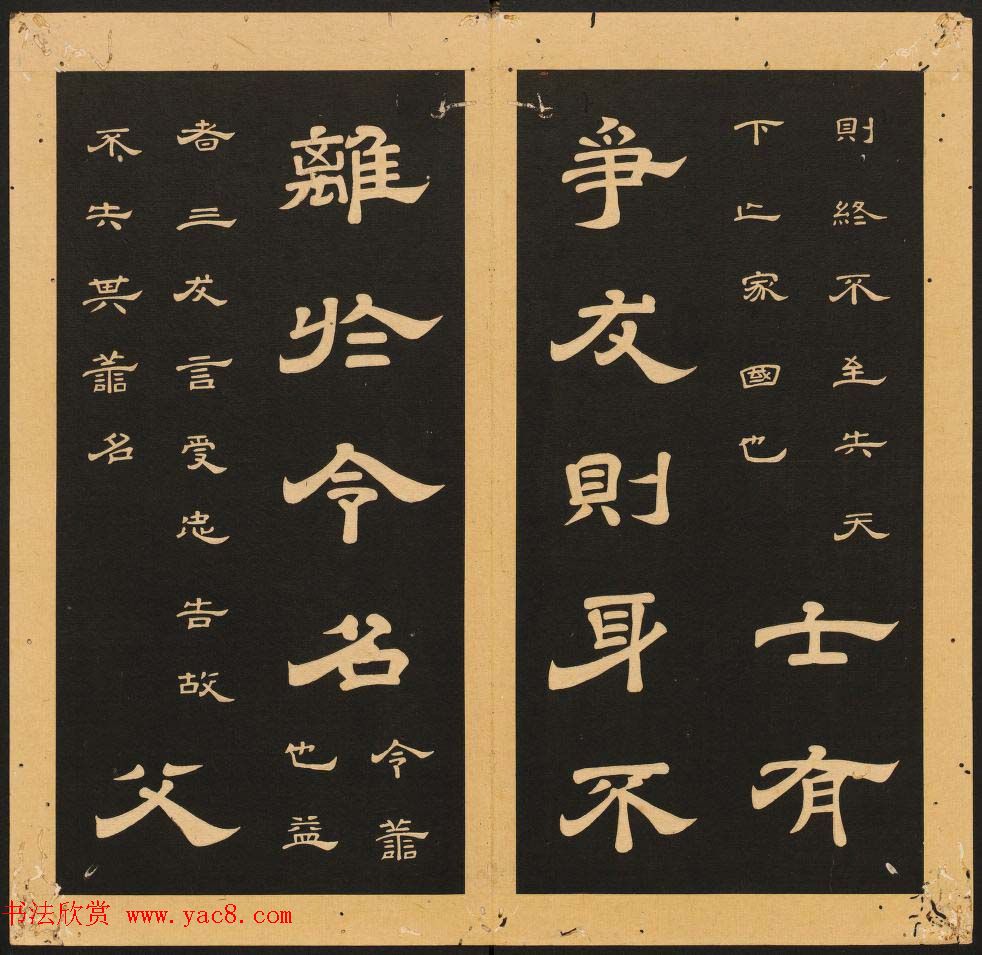 則終不至失天
下亡家國也
士有
爭友則身不
離於令名
令善
也益
者三友言受忠告故
不失其善名
父
书法欣赏 www.yac8.com